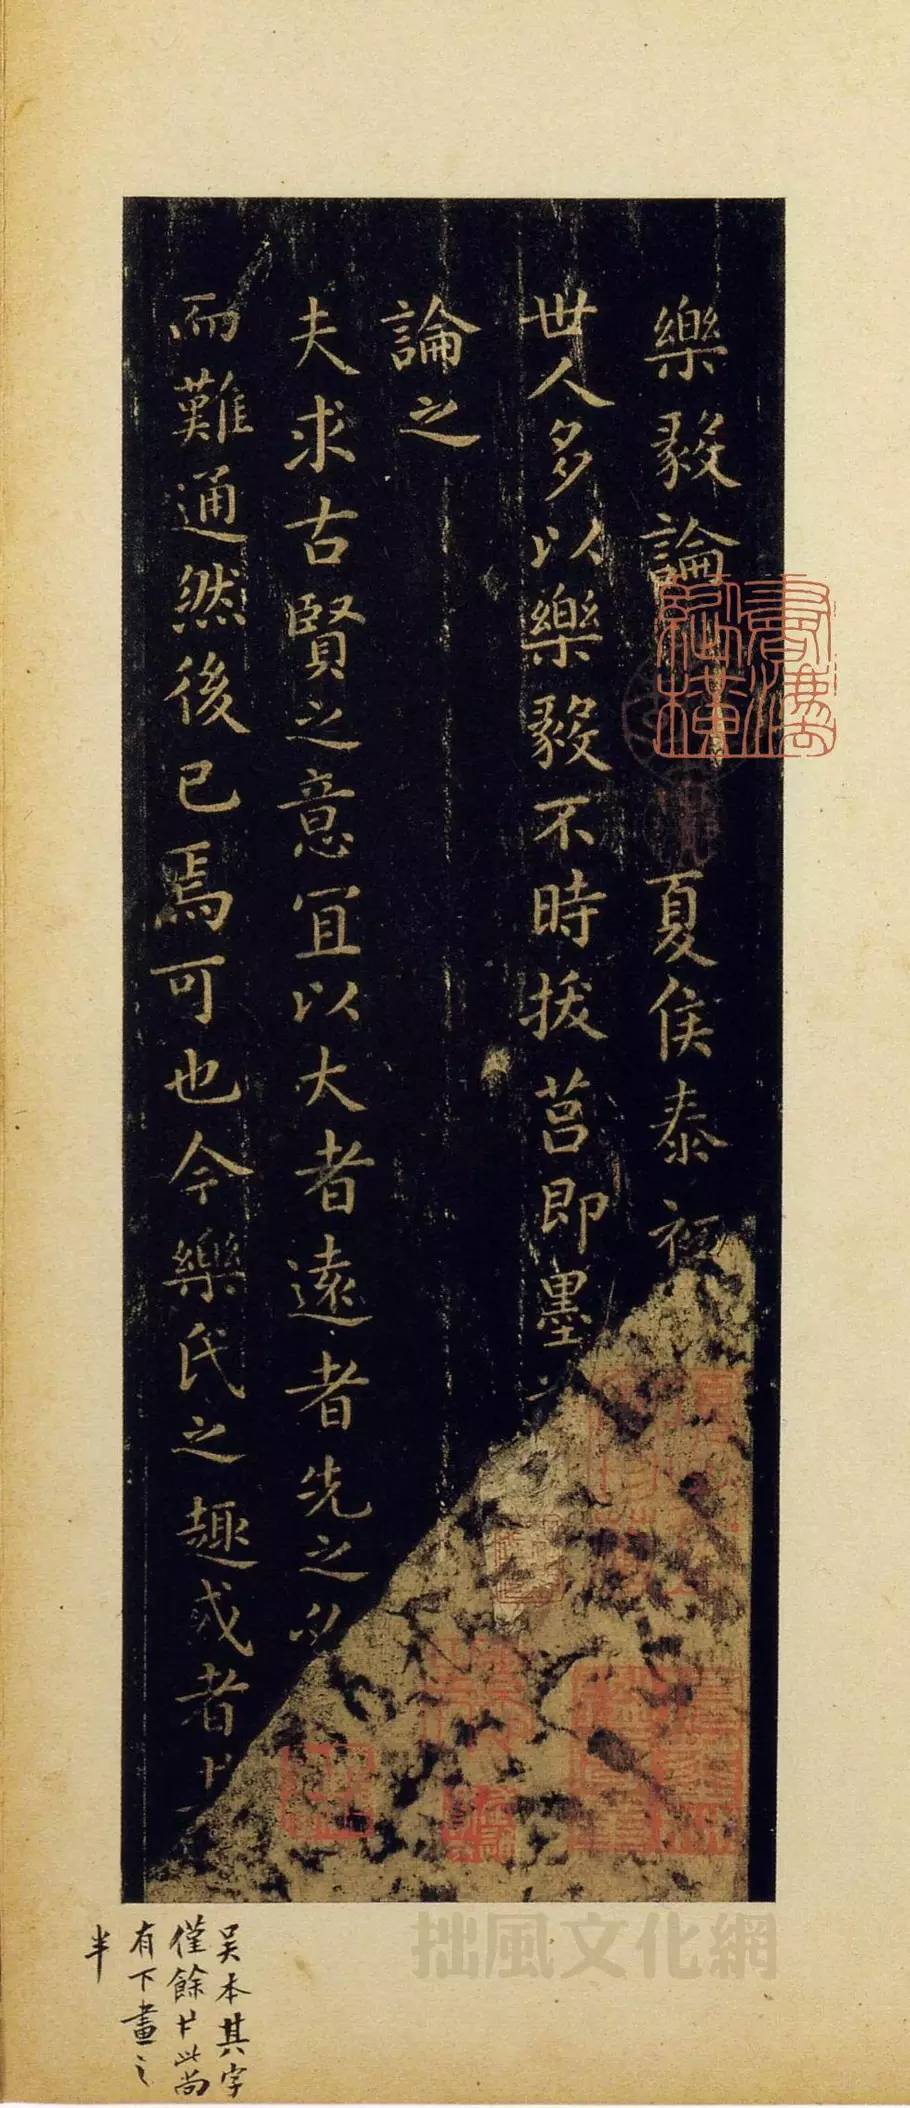 樂毅論
夏侯泰初
世人多以樂毅不時拔莒即墨
論之
夫求古賢之意宜以大者遠者先之必
而難通然後已焉可也今樂氏之趣或者
吳本其字
僅餘廿此尚
有下畫之
半
拙風文化網